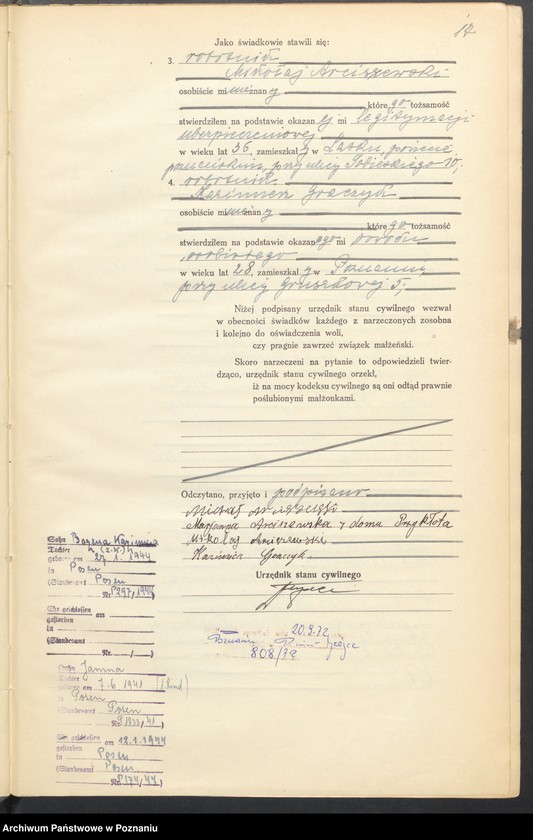 17
Jako świadkowie stawili się:
3. robotnik
Mikołaj Arciszewski
osobiście mi nieznany
, które go tożsamość
stwierdziłem na podstawie okazanej mi legitymacji
ubezpieczeniowej
w wieku lat 56, zamieszkały w Lasku, powiecie
poznańskim, przy ulicy Sobieskiego 10,
4. robotnik
Kazimierz Graczyk
osobiście mi nieznany
, które go tożsamość
stwierdziłem na podstawie okazanego mi dowodu
osobistego
w wieku lat 28, zamieszkały w Poznaniu
przy ulicy Gruszkowej 5,
Niżej podpisany urzędnik stanu cywilnego wezwał
w obecności świadków każdego z narzeczonych zosobna
i kolejno do oświadczenia woli,
czy pragnie zawrzeć związek małżeński.
Skoro narzeczeni na pytanie to odpowiedzieli twier-
dząco, urzędnik stanu cywilnego orzekł,
iż na mocy kodeksu cywilnego są oni odtąd prawnie
poślubionymi małżonkami.
Odczytano, przyjęto i podpisano
Marjanna Arciszewska z domu Przykłota
Mikołaj Arciszewski
Kazimierz Graczyk
Urzędnik stanu cywilnego
20.9.72
Poznań
808/72
Sohn Bożena Kazimiera
Tochter
geboren am 27.1.1944
in Posen
(Standesamt Posen
Nr. 297/1944)
Ehe geschlossen
gestorben am
in
(Standesamt
Nr. /)
Sohn Janina
Tochter
geboren am 7.6.1941 (1 Kind)
in Posen
(Standesamt Posen
Nr. 1833/41)
Ehe geschlossen
gestorben am 12.1.1944
in Posen
(Standesamt Posen
Nr. 174/44)
Archiwum Państwowe w Poznaniu